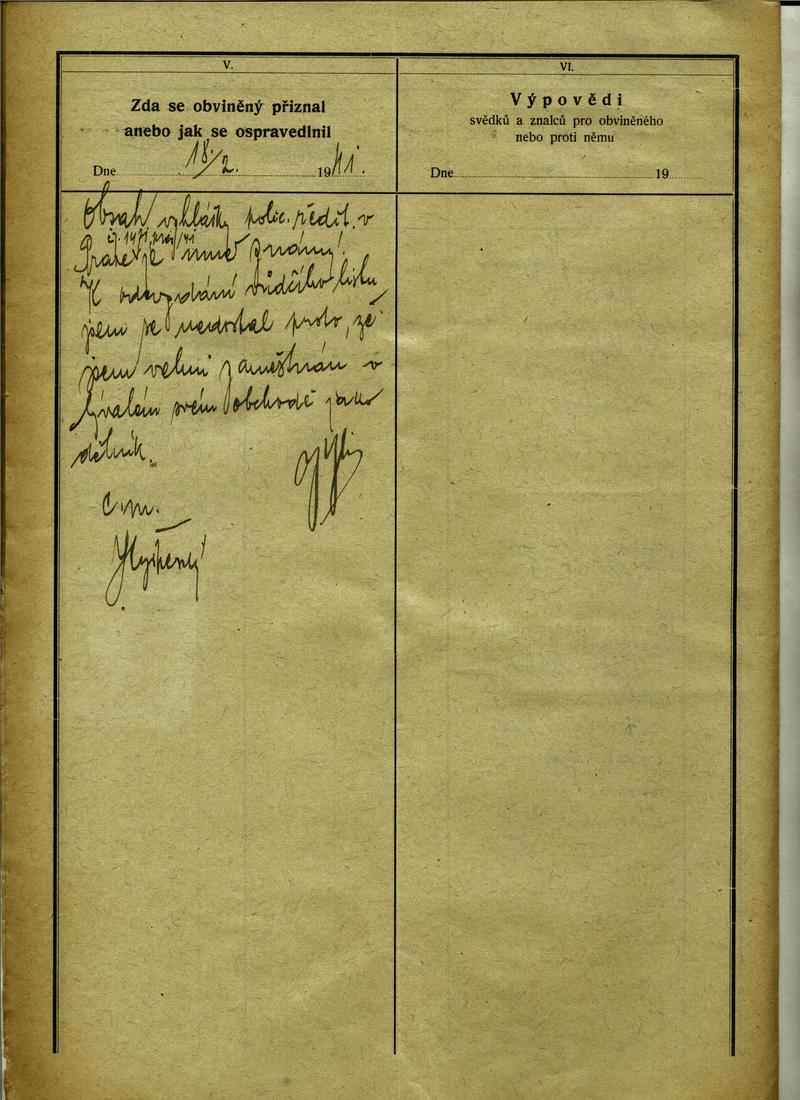 V.
Zda se obviněný přiznal
anebo jak se ospravedlnil
Dne 18./2. 1941.
Obsah vyhlášky polic. ředit. v
Praze je mně známý.
K odevzdání vůdčího listu
jsem se nedostal proto, že
jsem velmi zaměstnán v
bývalém svém obchodě jako
dělník.
VI.
Výpovědi
svědků a znalců pro obviněného
nebo proti němu
Dne 19